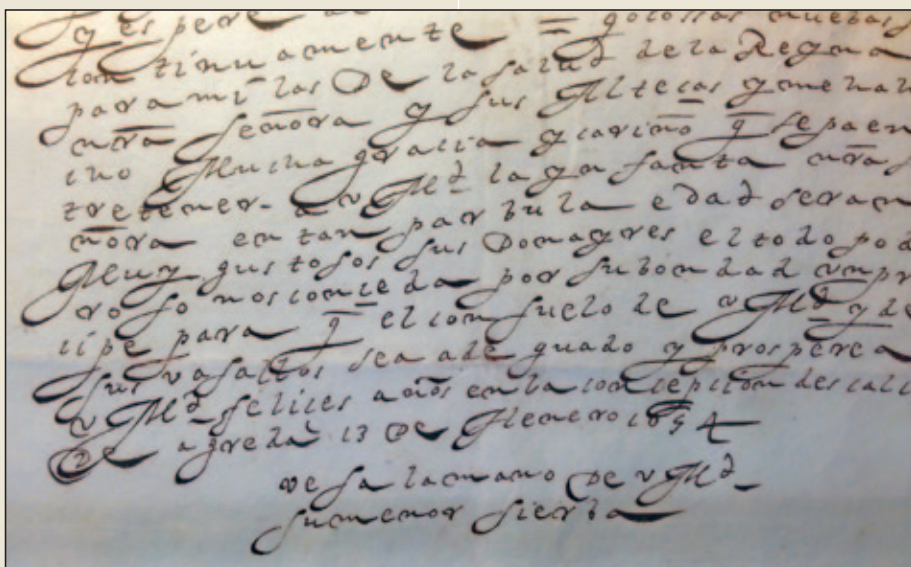 y espere
continuamente = golossas nuebas s
para mi las De la salud de la Reyna
nra señora y sus Altecas y me han
cho Mucha gracia y cariño q̄ sepa en
tretener a v Md la ynfanta nra s
ñora en tan parbula edad seran
Muy gustosos sus Donayres el todo pod
roso nos conceda por su bondad vn pr
cipe para q̄ el consuelo de v Md y de
sus vasallos sea ade guado y prospere a
v Md felices años en la concepcion descalc
De agreda 13 De Henero 1654
vesa la mano De v Md
su menor sierba